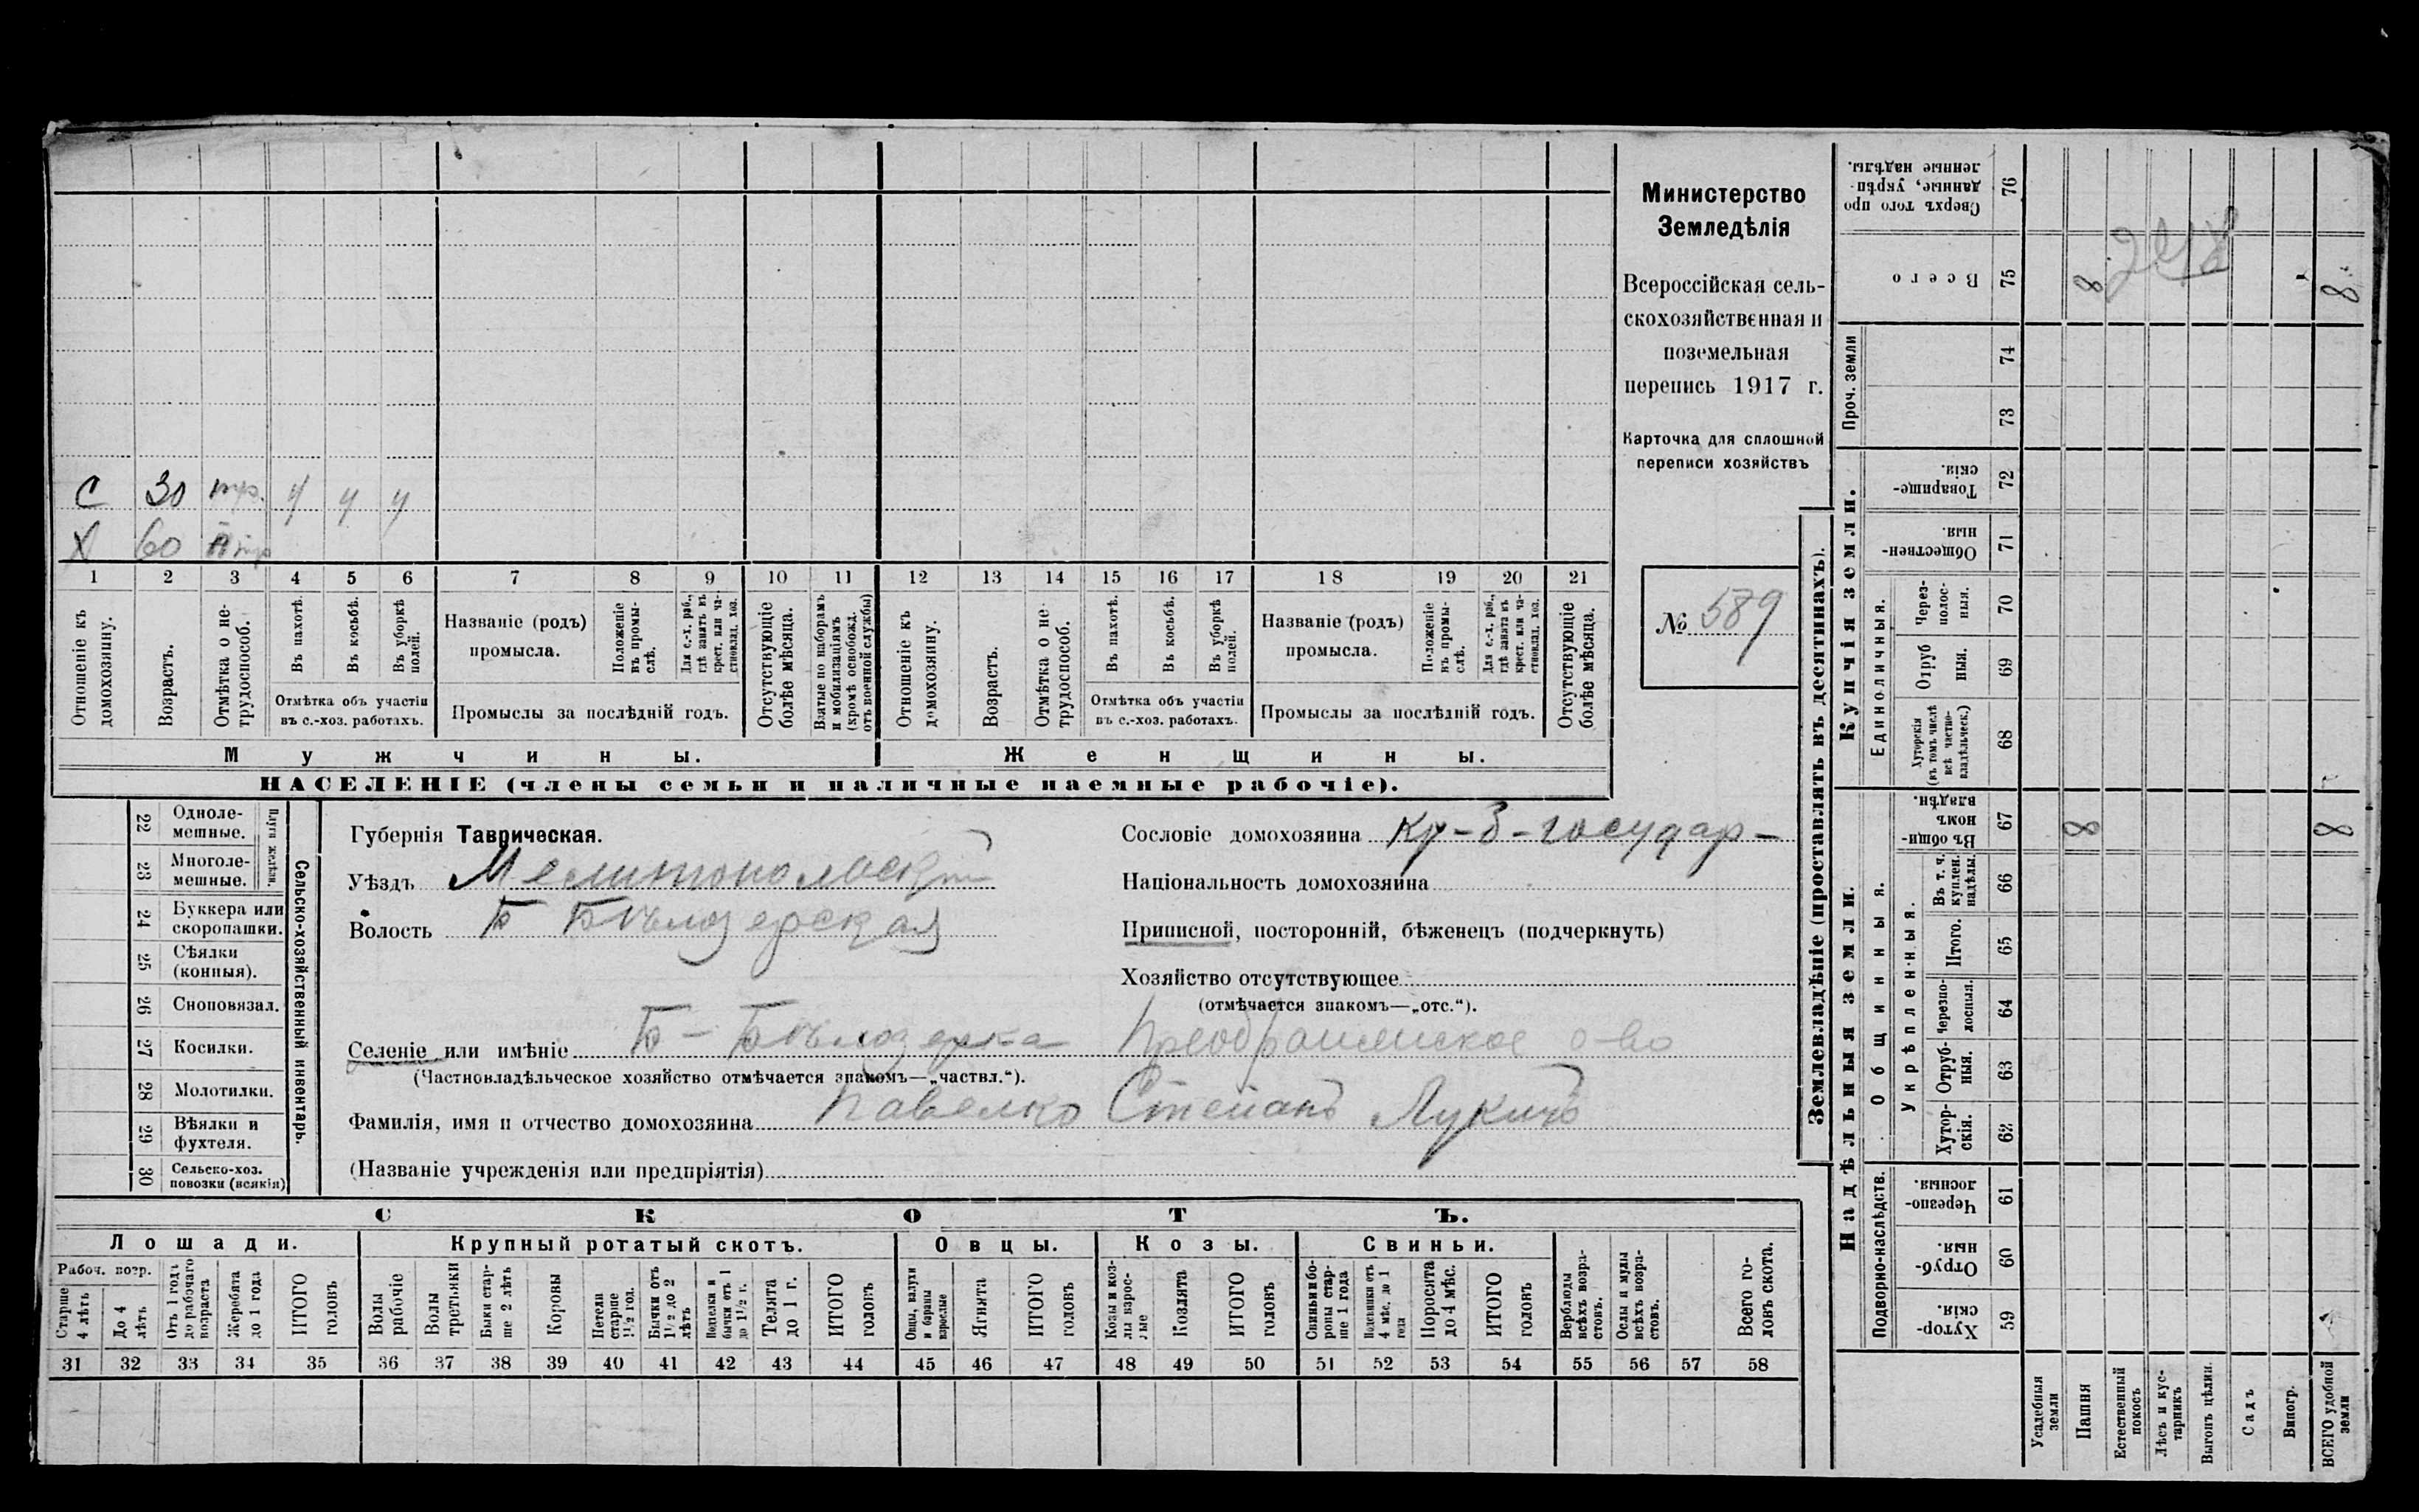 Министерство
Земледѣлія
Всероссійская сель-
скохозяйственная и
поземельная
перепись 1917 г.
Карточка для сплошной
переписи хозяйствъ
№ 589
С 30 тр. ч ч ч
Х 60
1 2 3 4 5 6 7 8 9 10 11 12 13 14 15 16 17 18 19 20 21
Отношеніе къ домохозяину.
Возрастъ.
Отмѣтка о не-трудоспособ.
Въ пахотѣ.
Въ косьбѣ.
Въ уборкѣ полей.
Отмѣтка объ участіи
въ с.-хоз. работахъ.
Названіе (родъ)
промысла.
Положеніе въ промы-слѣ.
Для с.-х. раб., гдѣ занятъ въ крест. или ча-стновлад. хоз.
Промыслы за послѣдній годъ.
Отсутствующіе болѣе мѣсяца.
Взятые по наборамъ и мобилизаціямъ (кромѣ освобожд. отъ военной службы)
Отношеніе къ домохозяину.
Возрастъ.
Отмѣтка о не-трудоспособ.
Въ пахотѣ.
Въ косьбѣ.
Въ уборкѣ полей.
Отмѣтка объ участіи
въ с.-хоз. работахъ.
Названіе (родъ)
промысла.
Положеніе въ промы-слѣ.
Для с.-х. раб., гдѣ занята въ крест. или ча-стновлад. хоз.
Промыслы за послѣдній годъ.
Отсутствующіе болѣе мѣсяца.
Мужчины.
Женщины.
НАСЕЛЕНІЕ (члены семьи и наличные наемные рабочіе).
22 Одноле-мешные.
23 Многоле-мешные.
Плуги желѣзн.
24 Буккера или скоропашки.
25 Сѣялки (конныя).
26 Сноповязал.
27 Косилки.
28 Молотилки.
29 Вѣялки и фухтеля.
30 Сельско-хоз. повозки (всякія)
Сельско-хозяйственный инвентарь.
Губернія Таврическая.
Уѣздъ Мелитопольскій
Волость Б Бѣлозерская
Селеніе или имѣніе Б-Бѣлозерка Преображенское о-во
(Частновладѣльческое хозяйство отмѣчается знакомъ—„частвл.“).
Фамилія, имя и отчество домохозяина Павелко Степанъ Лукичъ
(Названіе учрежденія или предпріятія)
Сословіе домохозяина Кр-З-государ-
Національность домохозяина
Приписной, посторонній, бѣженецъ (подчеркнуть)
Хозяйство отсутствующее
(отмѣчается знакомъ—„отс.“).
СКОТЪ.
Лошади.
Крупный рогатый скотъ.
Овцы.
Козы.
Свиньи.
Рабоч. возр.
Старше 4 лѣтъ
До 4 лѣтъ
Отъ 1 года до рабочаго возраста
Жеребята до 1 года
ИТОГО головъ
Волы рабочіе
Волы третьяки
Быки стар-ше 2 лѣтъ
Коровы
Нетели старше 1½ год.
Бычки отъ 1½ до 2 лѣтъ
Подтелки и бычки отъ 1 до 1½ г.
Телята до 1 г.
ИТОГО головъ
Овцы, валухи и бараны взрослые
Ягнята
ИТОГО головъ
Козы и коз-лы взрос-лые
Козлята
ИТОГО головъ
Свиньи и бо-ровы стар-ше 1 года
Подсвинки отъ 4 мѣс. до 1 года
Поросята до 4 мѣс.
ИТОГО головъ
Верблюды всѣхъ возра-стовъ.
Ослы и мулы всѣхъ возра-стовъ.
Всего го-ловъ скота.
31 32 33 34 35 36 37 38 39 40 41 42 43 44 45 46 47 48 49 50 51 52 53 54 55 56 57 58
Землевладѣніе (проставлять въ десятинахъ).
Купчія земли.
Надѣльныя земли.
Сверхъ того про данные, укрѣп-ленные надѣлы. 76
Всего 75 8 8
Проч. земли
74
73
Товарище-скія. 72
Обществен-ныя. 71
Единоличныя.
Через-полос-ныя. 70
Отруб ныя. 69
Хуторскія (въ томъ числѣ всѣ частно-владѣльческ.) 68
Общинныя.
Въ общи-номъ владѣн. 67 8 8
Укрѣпленныя.
Въ т. ч. куплен. надѣлы. 66
Итого. 65
Черезпо-лосныя. 64
Отруб-ныя. 63
Хутор-скія. 62
Подворно-наслѣдств.
Черезпо-лосныя. 61
Отруб-ныя. 60
Хутор-скія. 59
Усадебныя земли
Пашня
Естественный покосъ
Лѣсъ и кус-тарникъ
Выгонъ цѣлин.
Садъ
Виногр.
ВСЕГО удобной земли